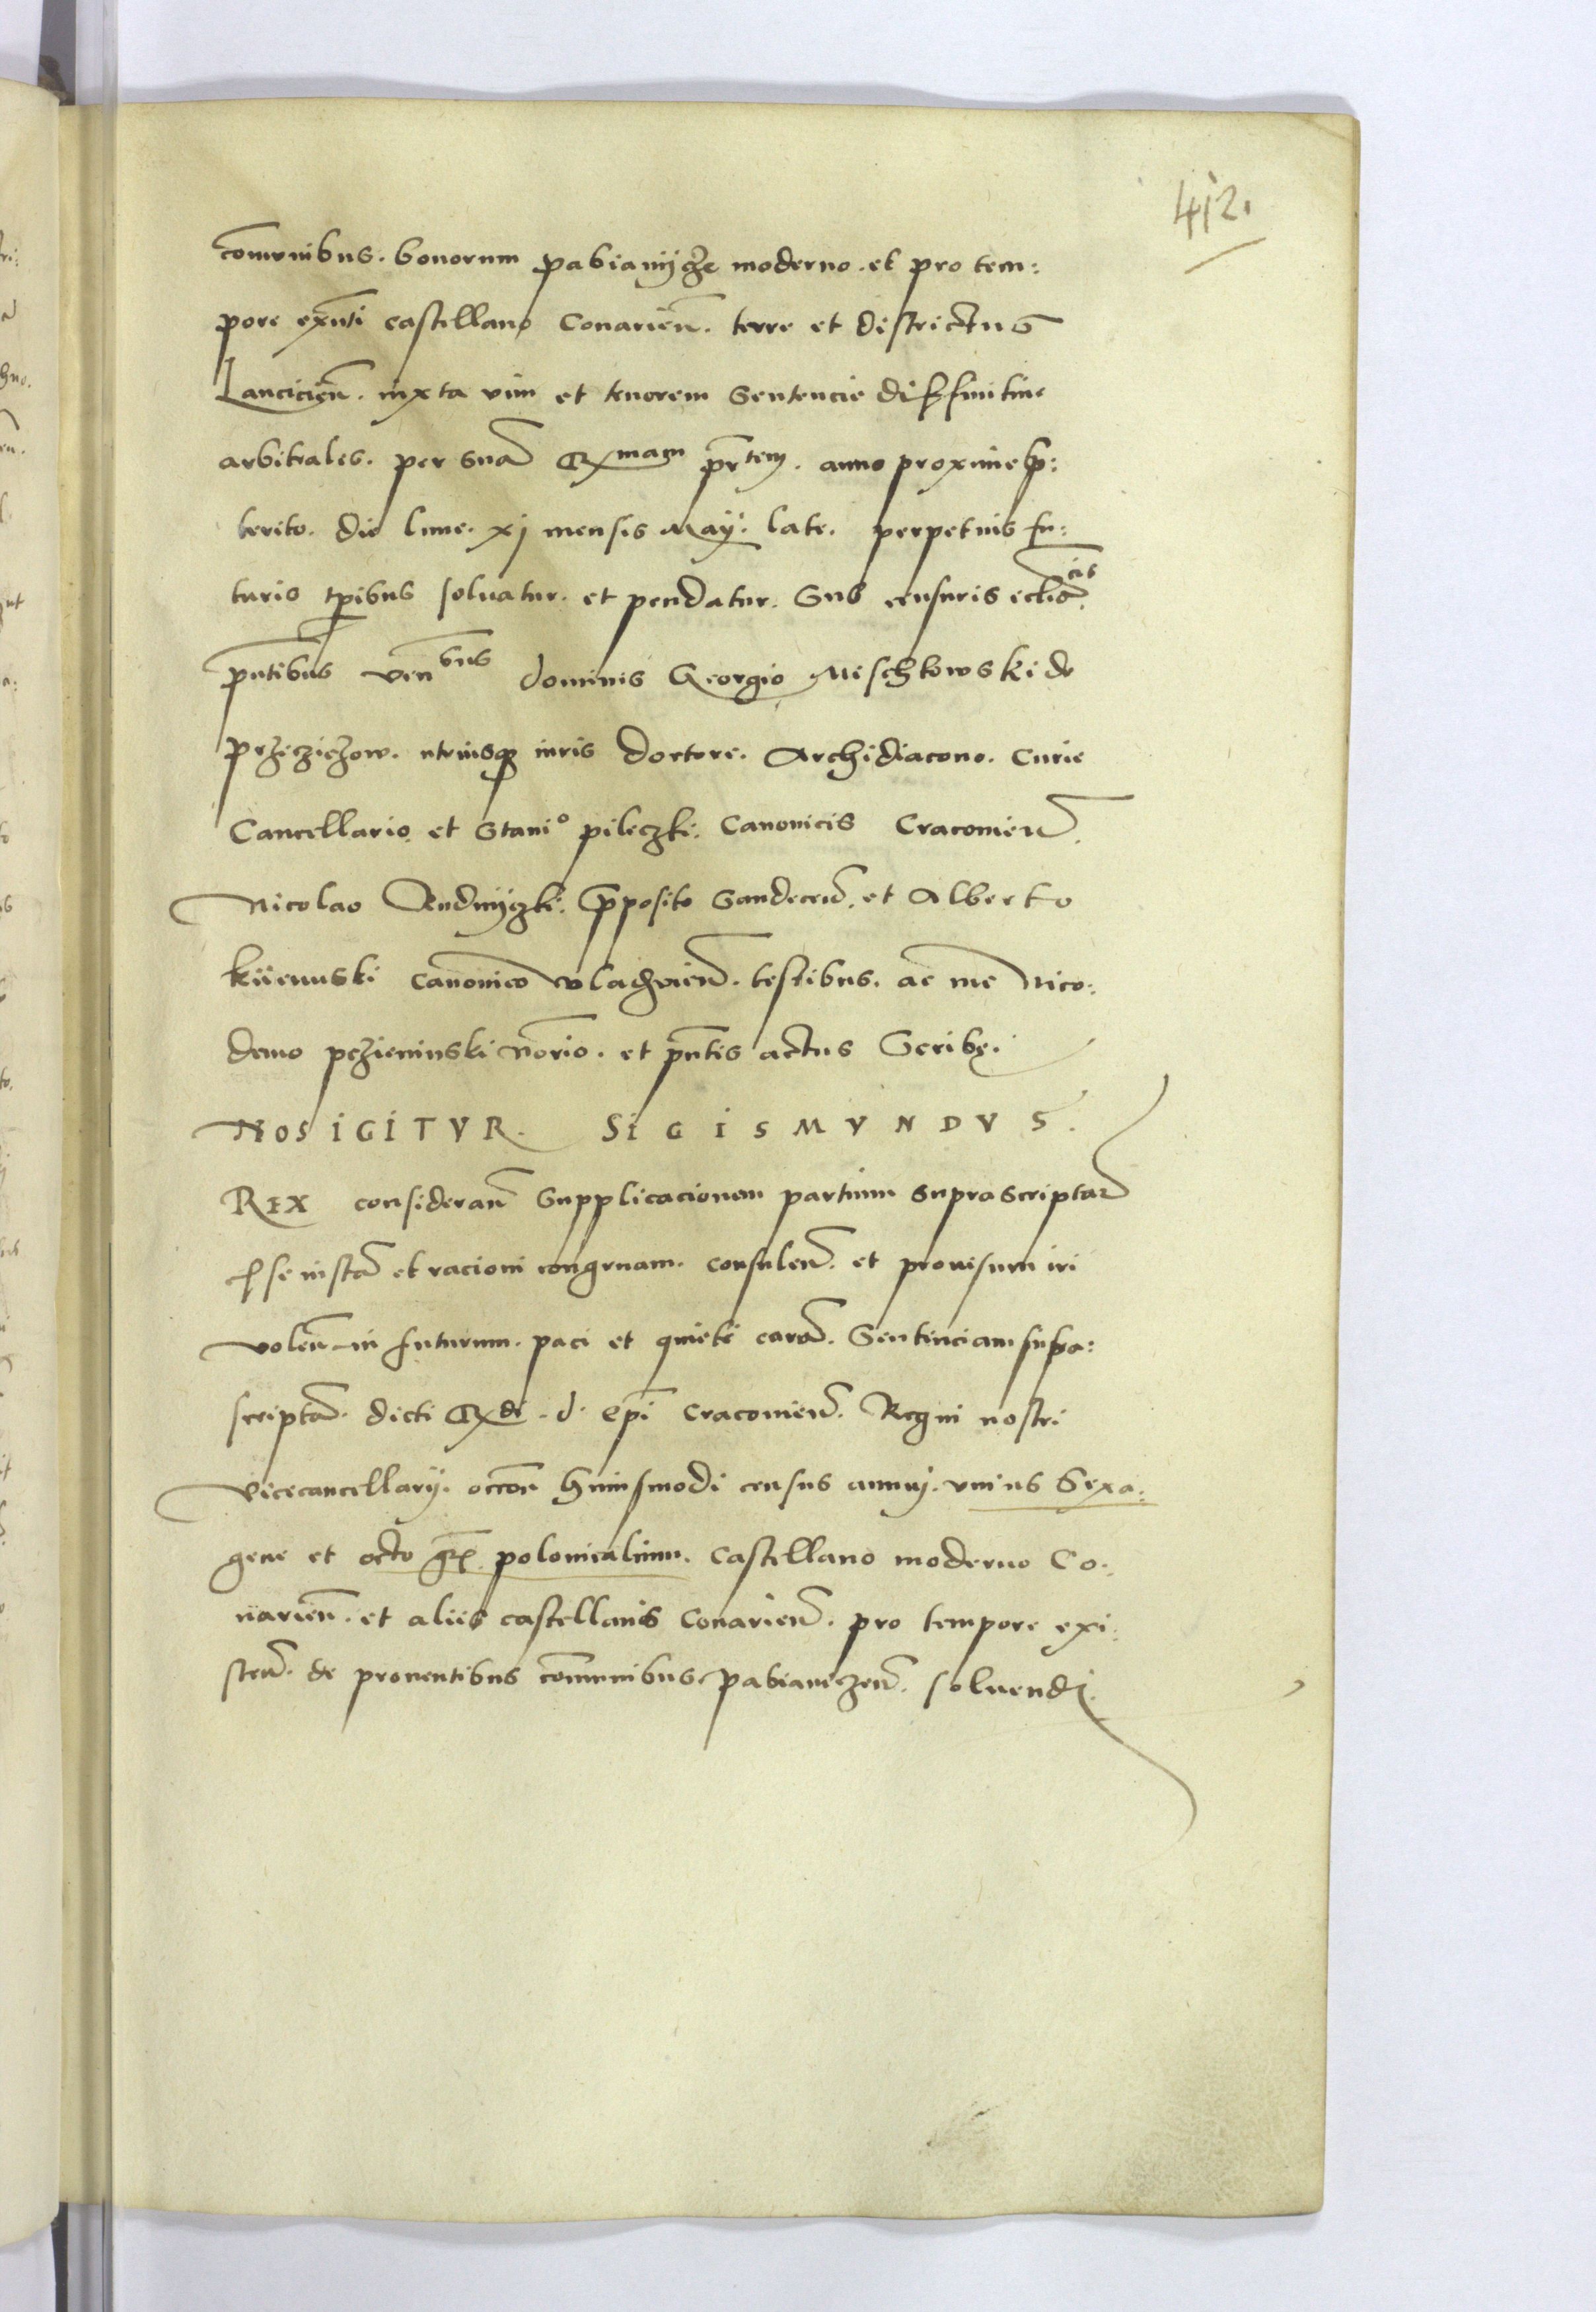 412.
com̅unibus. bonorum pabianijcze moderno. et pro tem:
pore exn̅ti castellano Conarien̅. terre et districtus
Lancicien̅. iuxta vim et tenorem Sentencie diffinitiue
arbitrales. per sua̅ Rmam pr̅tem. anno proxime p̱:
terito. die lune. xj mensis Maÿ. late. perpetuis fu:
turis tp̅ibus soluatur. et pendatur. Sub censuris ecl̅iacis.
pn̅tibus venbus dominis Georgio Mischkowski de
przecziszow. utriusqȝ iuris doctore. Archidiacono. Curie
Cancellario. et Stanio pileczki. Canonicis Cracouien̅.
Nicolao Rudnijczki. p̅posito Sandecen̅. et Alberto
kÿewski canonico wladzien̅. testibus. ac me Nico:
demo pczieninski no̅rio. et pn̅tis actus Scribe.
NOS IGITVR. SIGISMVNDVS.
REX consideran̅ Supplicacionem partium suprascriptar̅
ꝑ se iusta̅ et racioni congruam. consulen̅. et prouisum iri
volen̅ in futurum. paci et quieti earu̅. Sentenciam supra:
scripta̅. dicti Rdi. d. ep̅i Cracouien̅. Regni nostri
Vicecancellarij. occo̅e huiusmodi census annuj. vnius Sexa:
gene et octo gr̅. polonicalium. castellano moderno Co:
narien̅. et aliis castellanis Conarien̅. pro tempore exi:
sten̅. de prouentibus com̅unibus pabianiczen̅. soluendi.